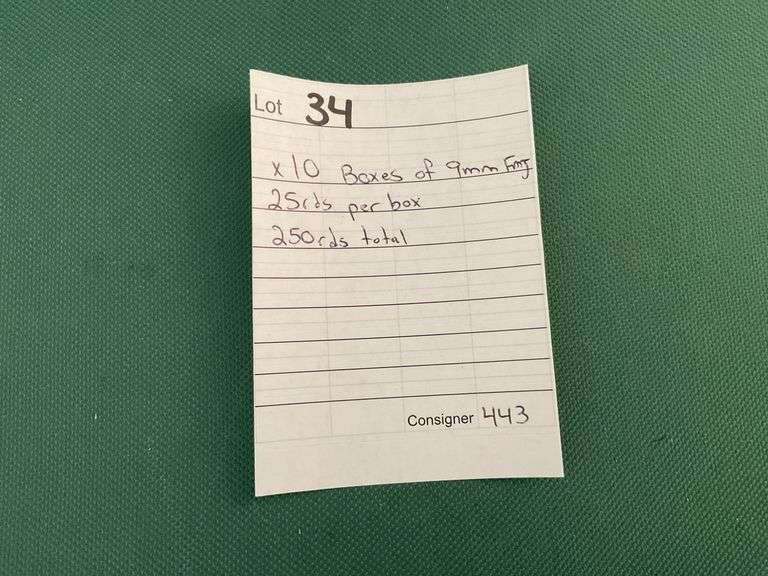 Lot 34
x10 Boxes of 9mm FMJ
25rds per box
250rds total
Consigner 443